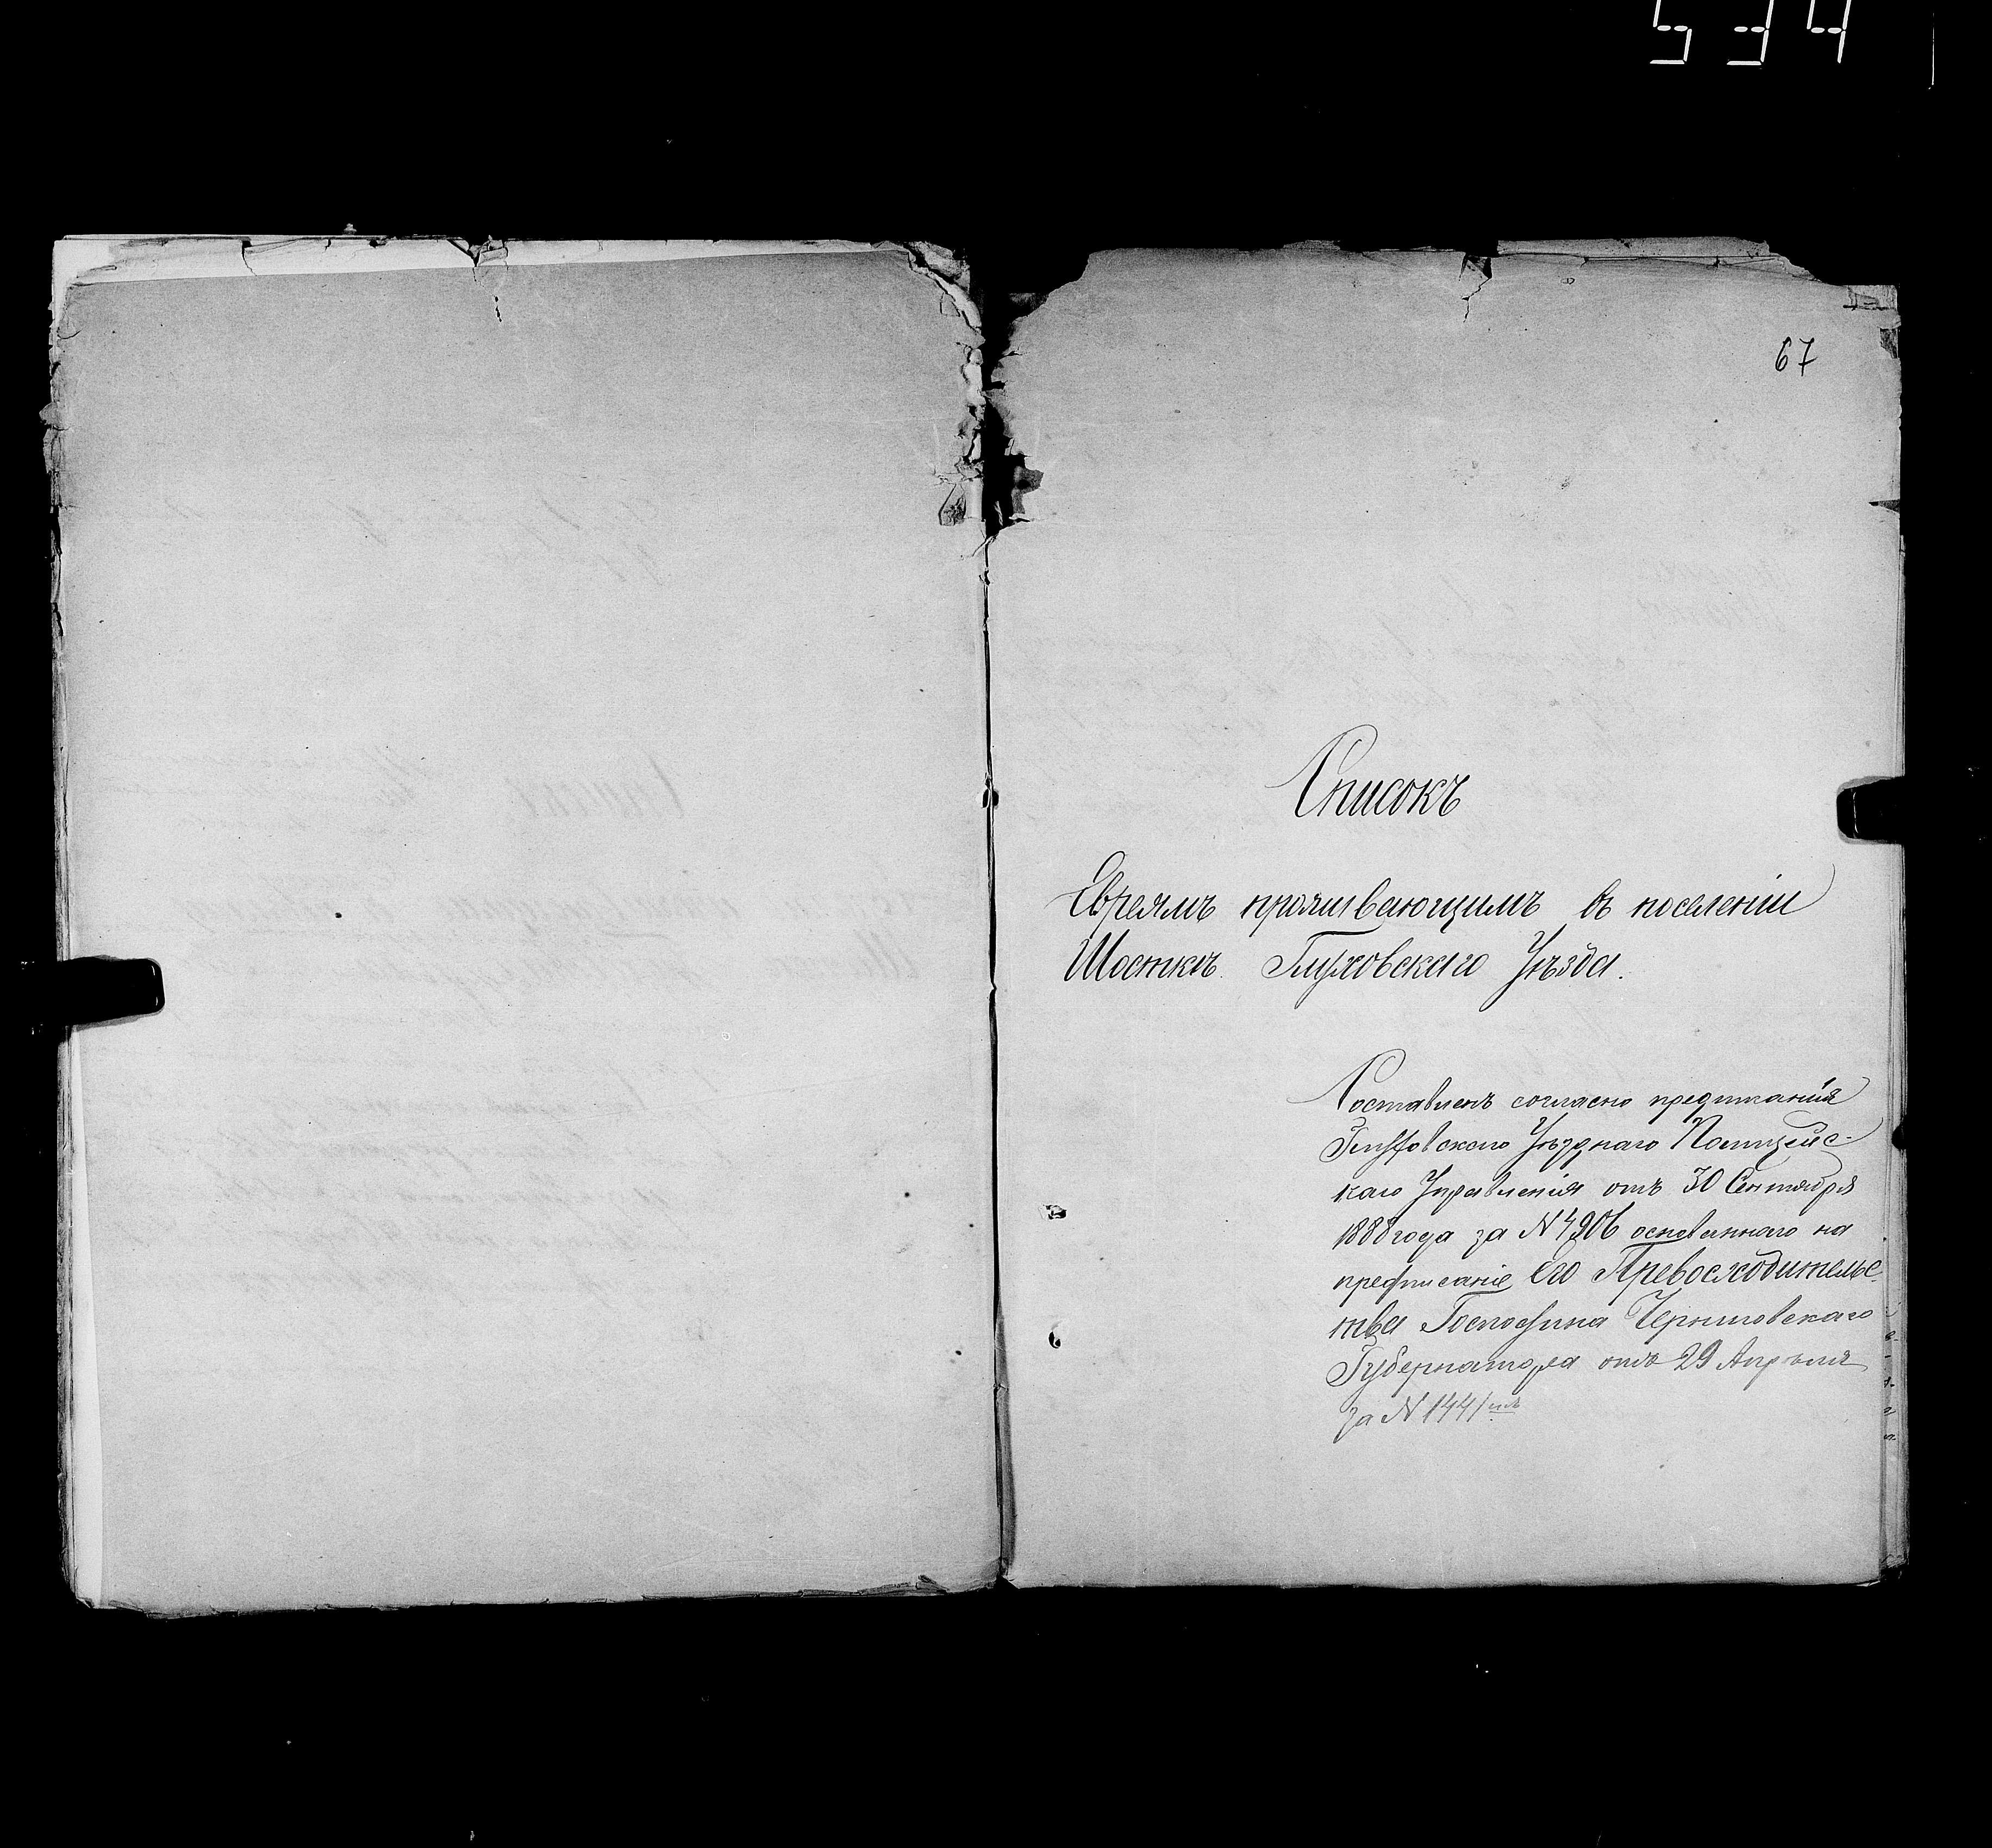 534
67
Списокъ
Евреямъ проживающимъ въ поселеніи
Шосткѣ. Глуховскаго Уѣзда.
Составленъ согласно предписанія
Глуховскаго Уѣзднаго Полицейс-
каго Управленія отъ 30 Сентября
1888 года за N 4906 основаннаго на
предписаніе Его Превосходительс-
тва Господина Черниговскаго
Губернатора отъ 29 Апрѣля
за N 144/